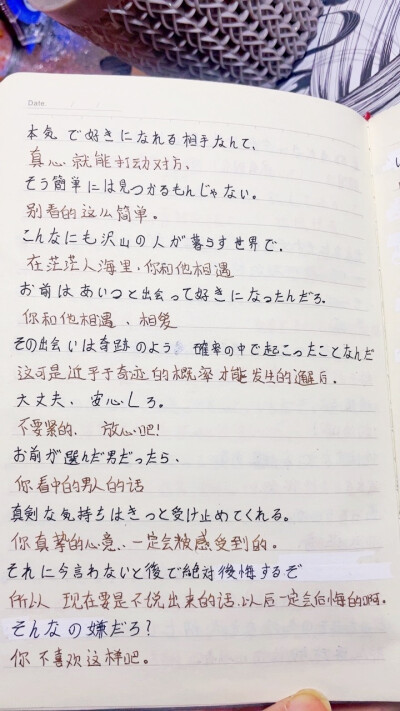 Date.
本気で好きになれる相手なんて、
真心就能打动对方、
そう簡単には見つかるもんじゃない。
别看的这么简单。
こんなにも沢山の人が暮らす世界で、
在茫茫人海里,你和他相遇
お前はあいつと出会って好きになったんだろ。
你和他相遇、相爱
その出会いは奇跡のよう、確率の中で起こったことなんだ
这可是近乎于奇迹的概率才能发生的邂逅。
大丈夫、安心しろ。
不要紧的、放心吧!
お前が選んだ男だったら、
你看中的男人的话
真剣な気持ちはきっと受け止めてくれる。
你真挚的心意、一定会被感受到的。
それに今言わないと後で絶対後悔するぞ
所以 现在要是不说出来的话,以后一定会后悔的啊。
そんなの嫌だろ?
你不喜欢这样吧。